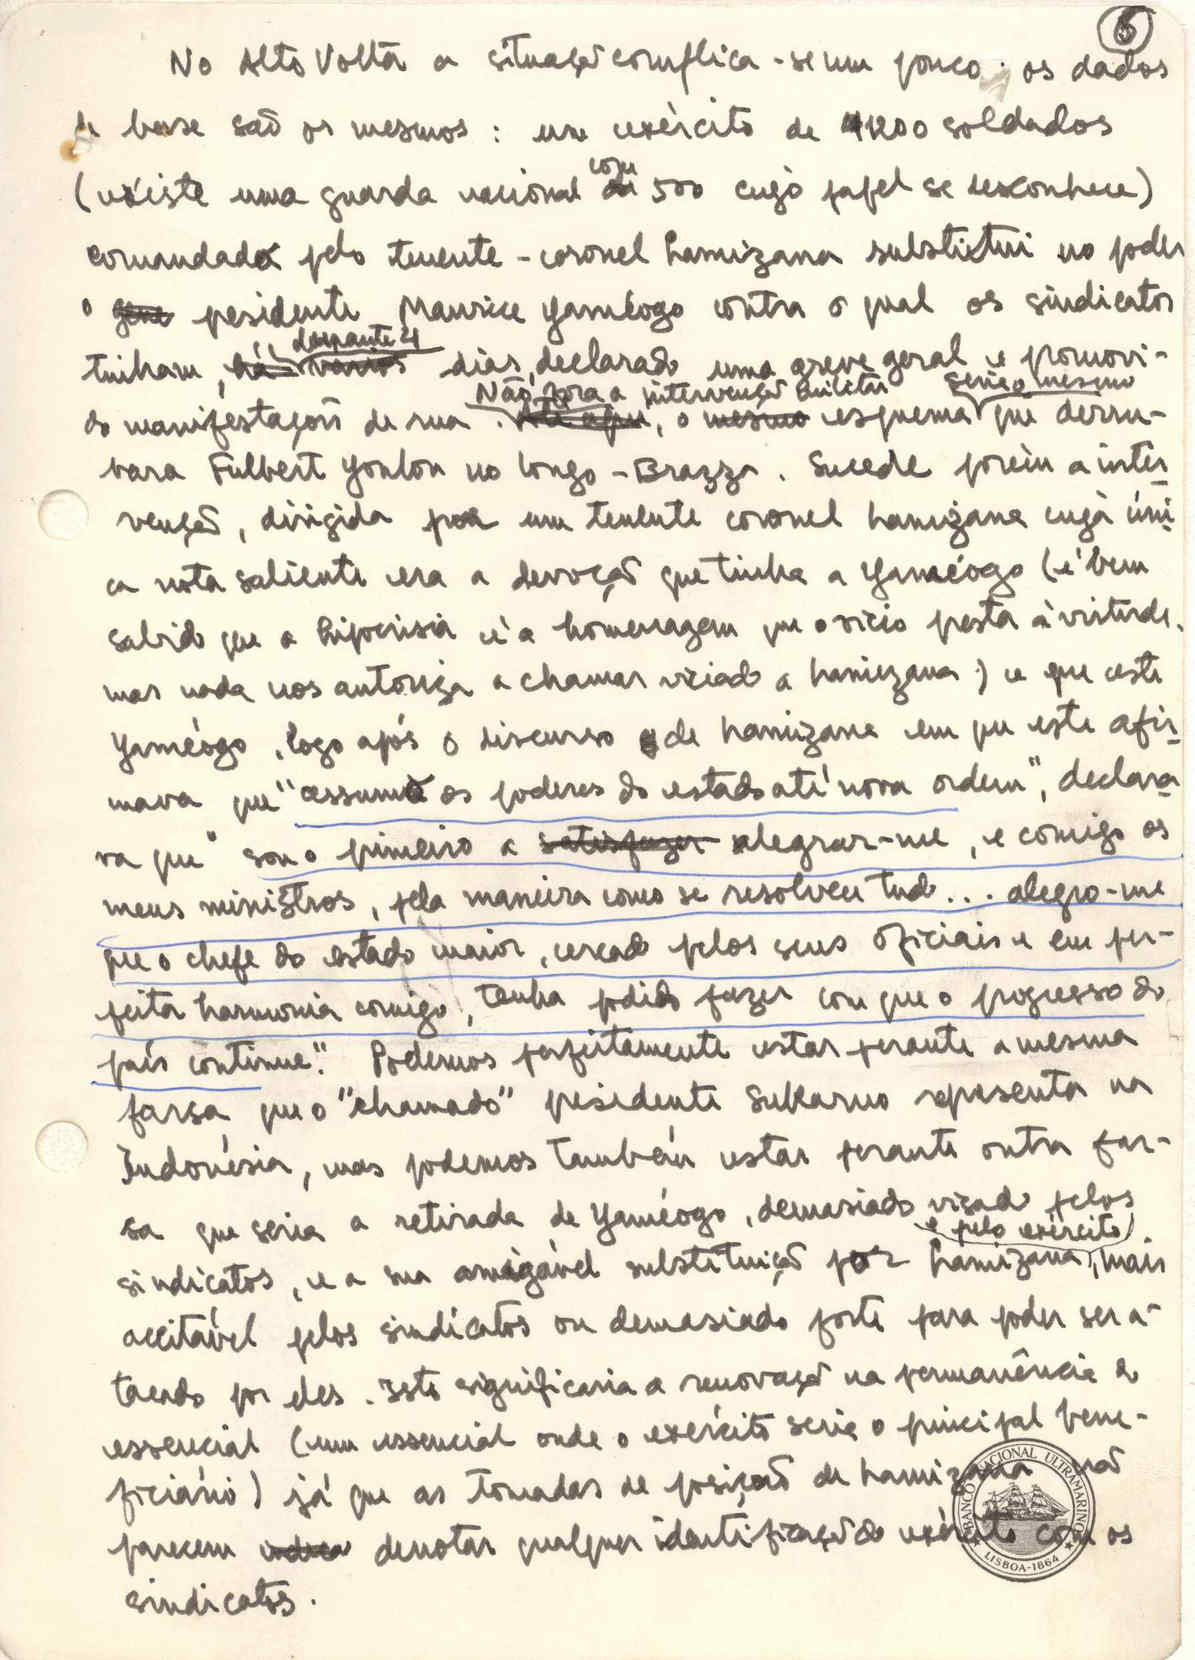 6
No Alto Volta a situação complica-se um pouco. os dados
de base são os mesmos: um exército de 1200 soldados
(existe uma guarda nacional com 500 cujo papel se desconhece)
comandado pelo tenente-coronel Lamizana substitui no poder
o presidente Maurice Yaméogo contra o qual os sindicatos
tinham, durante 4 dias, declarado uma greve geral e promovi-
do manifestações de rua. Não fora a intervenção militar, o esquema seria o mesmo que derru-
bara Fulbert Youlou no Congo-Brazza. Sucede porém a inter
venção, dirigida por um tenente coronel Lamizana cuja úni
ca nota saliente era a devoção que tinha a Yaméogo (é bem
sabido que a hipocrisia é a homenagem que o vício presta à virtude,
mas nada nos autoriza a chamar viciado a Lamizana) e que este
Yaméogo, logo após o discurso de Lamizana em que este afir
mava que "assume os poderes do estado até nova ordem", declara
va que "sou o primeiro a satisfazer alegrar-me, e comigo os
meus ministros, pela maneira como se resolveu tudo... alegro-me
que o chefe do estado maior, cercado pelos seus oficiais e em per-
feita harmonia comigo, tenha podido fazer com que o progresso do
país continue". Podemos perfeitamente estar perante a mesma
farsa que o "chamado" presidente Sukarno representa na
Indonésia, mas podemos também estar perante outra far-
sa que seria a retirada de Yaméogo, demasiado visado pelos
sindicatos, e a sua amigável substituição por Lamizana e pelo exército, mais
aceitável pelos sindicatos ou demasiado forte para poder ser a-
tacado por eles. Isto significaria a renovação na permanência do
essencial (um essencial onde o exército seria o principal bene-
ficiário) já que as tomadas de posição de Lamizana não
parecem denotar qualquer identificação do exército com os
sindicatos.
BANCO NACIONAL ULTRAMARINO
LISBOA-1864